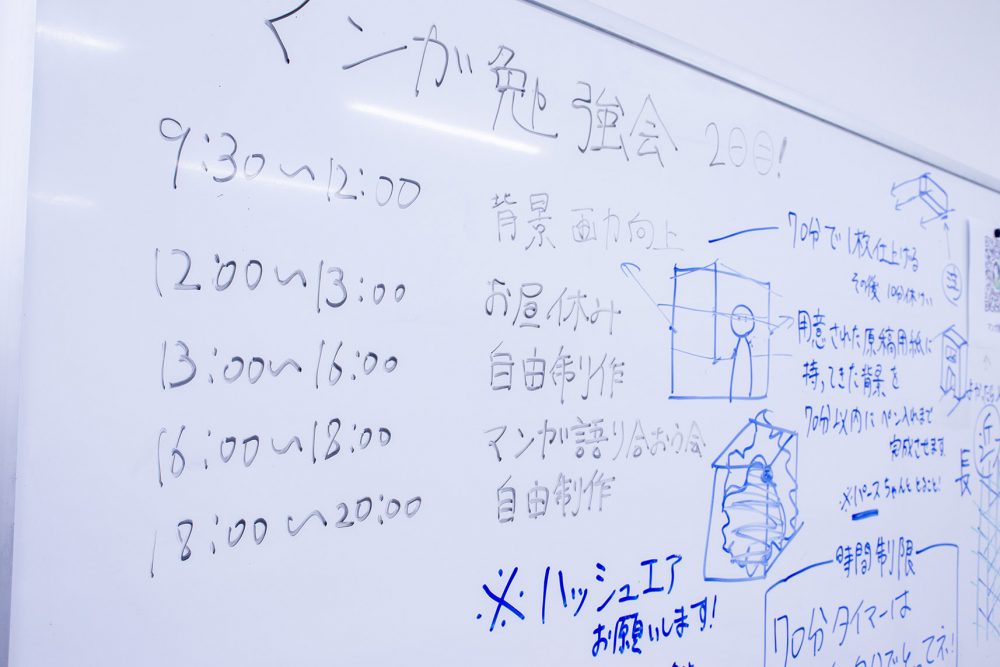 マンガ勉強会 2日目!
9:30〜12:00 背景 画力向上
12:00〜13:00 お昼休み
13:00〜16:00 自由制作
16:00〜18:00 マンガ語り合おう会
18:00〜20:00 自由制作
※ハッシュエア
お願いします!
70分で1枚仕上げる
その後 10分休けい
用意された原稿用紙に
持ってきた背景を
70分以内にペン入れまで
完成させます
※パースちゃんととること!
時間制限
70分タイマーは
近
長